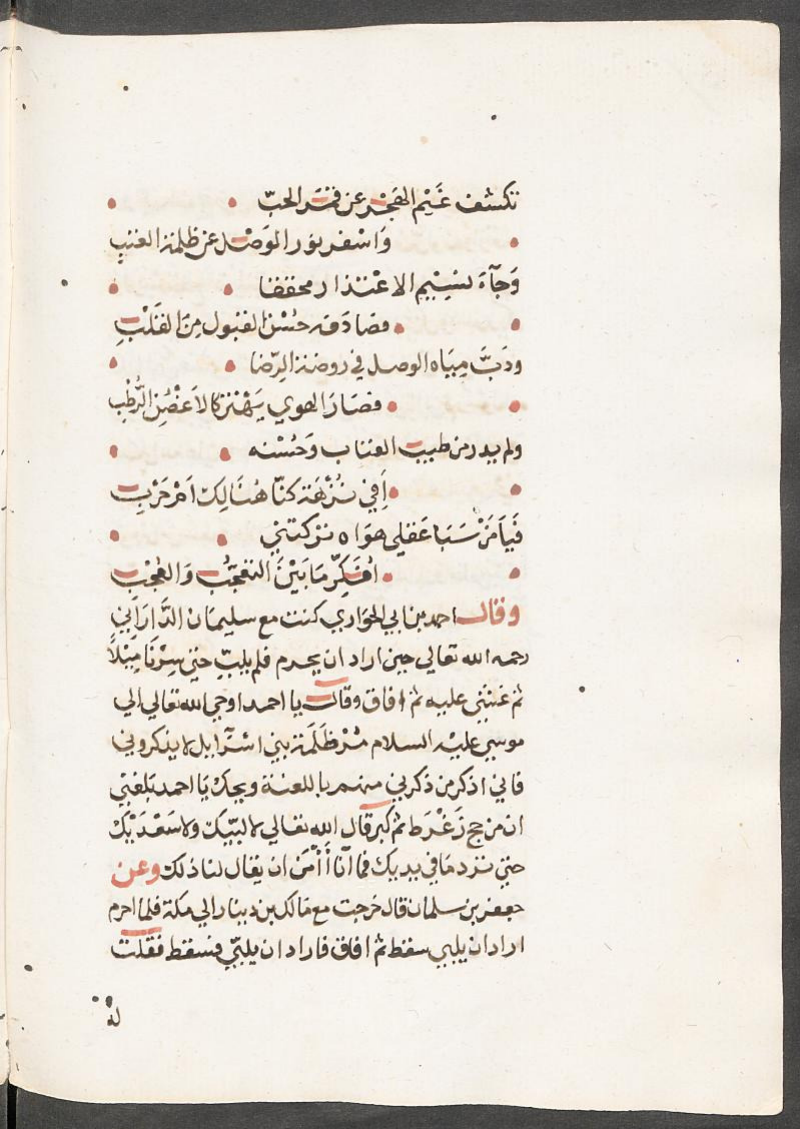 تكشف غَيْم الهَجْر عن قمَر الحبّ
وَاسْفر نور الوَصْل عن ظلمة العتبِ
وَجآءَ نسِيْم الاعْتذار محققا
فصَادَفه حُسْن القبول مِنَ القَلْبِ
ودَبَّ مِيَاه الوصل في روضة الرّضا
فصَارَ الهوي يَهْتز كالاَغْصُن الرُّطْبِ
ولم يدر من طيب العتاب وَحُسْنه
اَفي نُزْهَة كنّا هُنَالِك اَمْ حَرْبِ
فَيَا مَنْ سَبَا عَقلي هوَاه تركتني
اُفَكِّر مَا بَيْنَ التعَجّب وَالعُجْبِ
وقال احمد بن ابي الحوَاري كنت مع سليمان الدَّارَاني
رحمه الله تعالي حين اراد ان يحرم فلم يلبّ حتي سِرْنَا مِيْلاً
ثم غشي عليه ثم افاق وقال يا احمد اوحي الله تعالي الي
موسي عليْه السلام مُرْ ظَلَمَة بني اسْرآيل لا يذكروني
فاني اذكر من ذكرني منهم باللعنة ويحك يَا احمد بَلغني
ان من حج ثم كبر قال الله تعالي لا لبّيك ولا سَعْدَيْك
حتي ترد مَا في يديك فما آنا أأْمَن ان يقال لنا ذلك وعن
جعفر بن سلمان قال خرجت مع مَالك بن دينار الي مكة فلما احرم
اراد ان يلبي سقط ثم افاق فاراد ان يلبّي فسقط فقلت
له